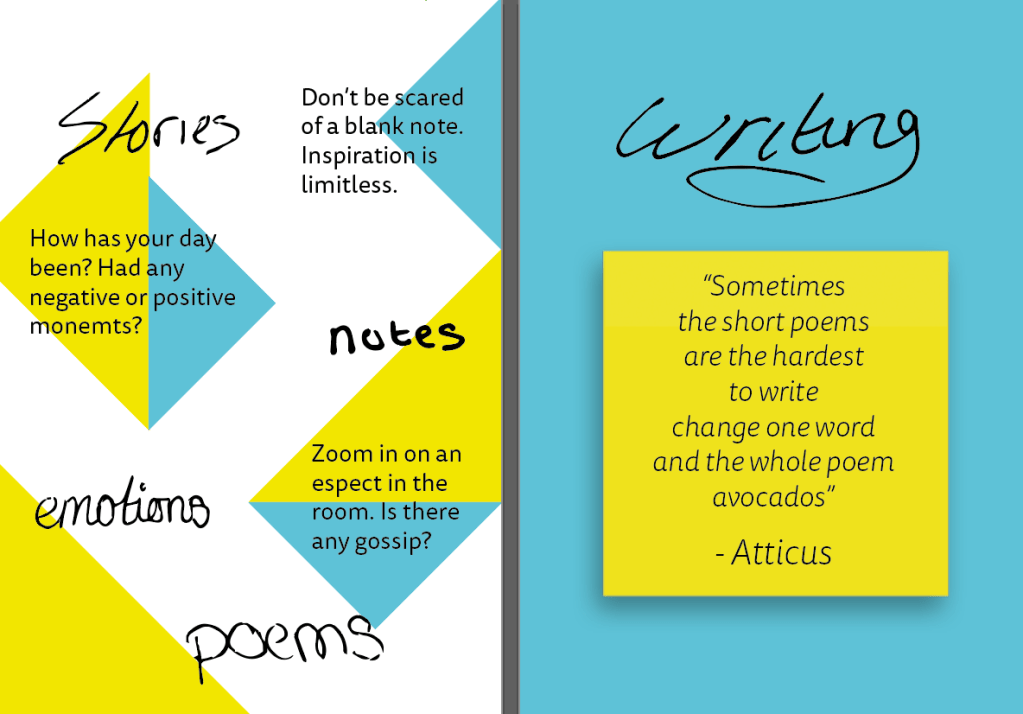 Stories
Don't be scared
of a blank note.
Inspiration is
limitless.
How has your day
been? Had any
negative or positive
monemts?
notes
Zoom in on an
espect in the
room. Is there
any gossip?
emotions
poems
Writing
“Sometimes
the short poems
are the hardest
to write
change one word
and the whole poem
avocados”
- Atticus